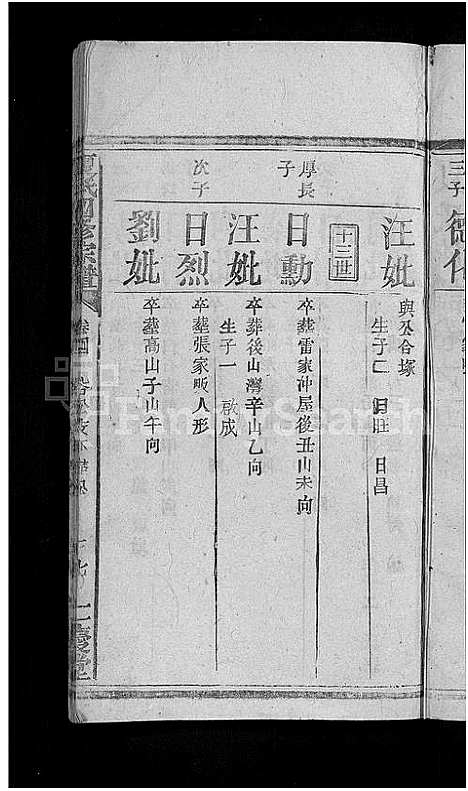 三子
德化
汪妣
與公合塚
生子二 日旺 日昌
十三世
厚長子
日勳
卒葬雷家沖屋後丑山未向
汪妣
卒葬後山灣辛山乙向
生子一 啟成
次子
日烈
卒葬張家畈人形
劉妣
卒葬高山子山午向
四修宗譜
卷四
慶堂
FamilySearch